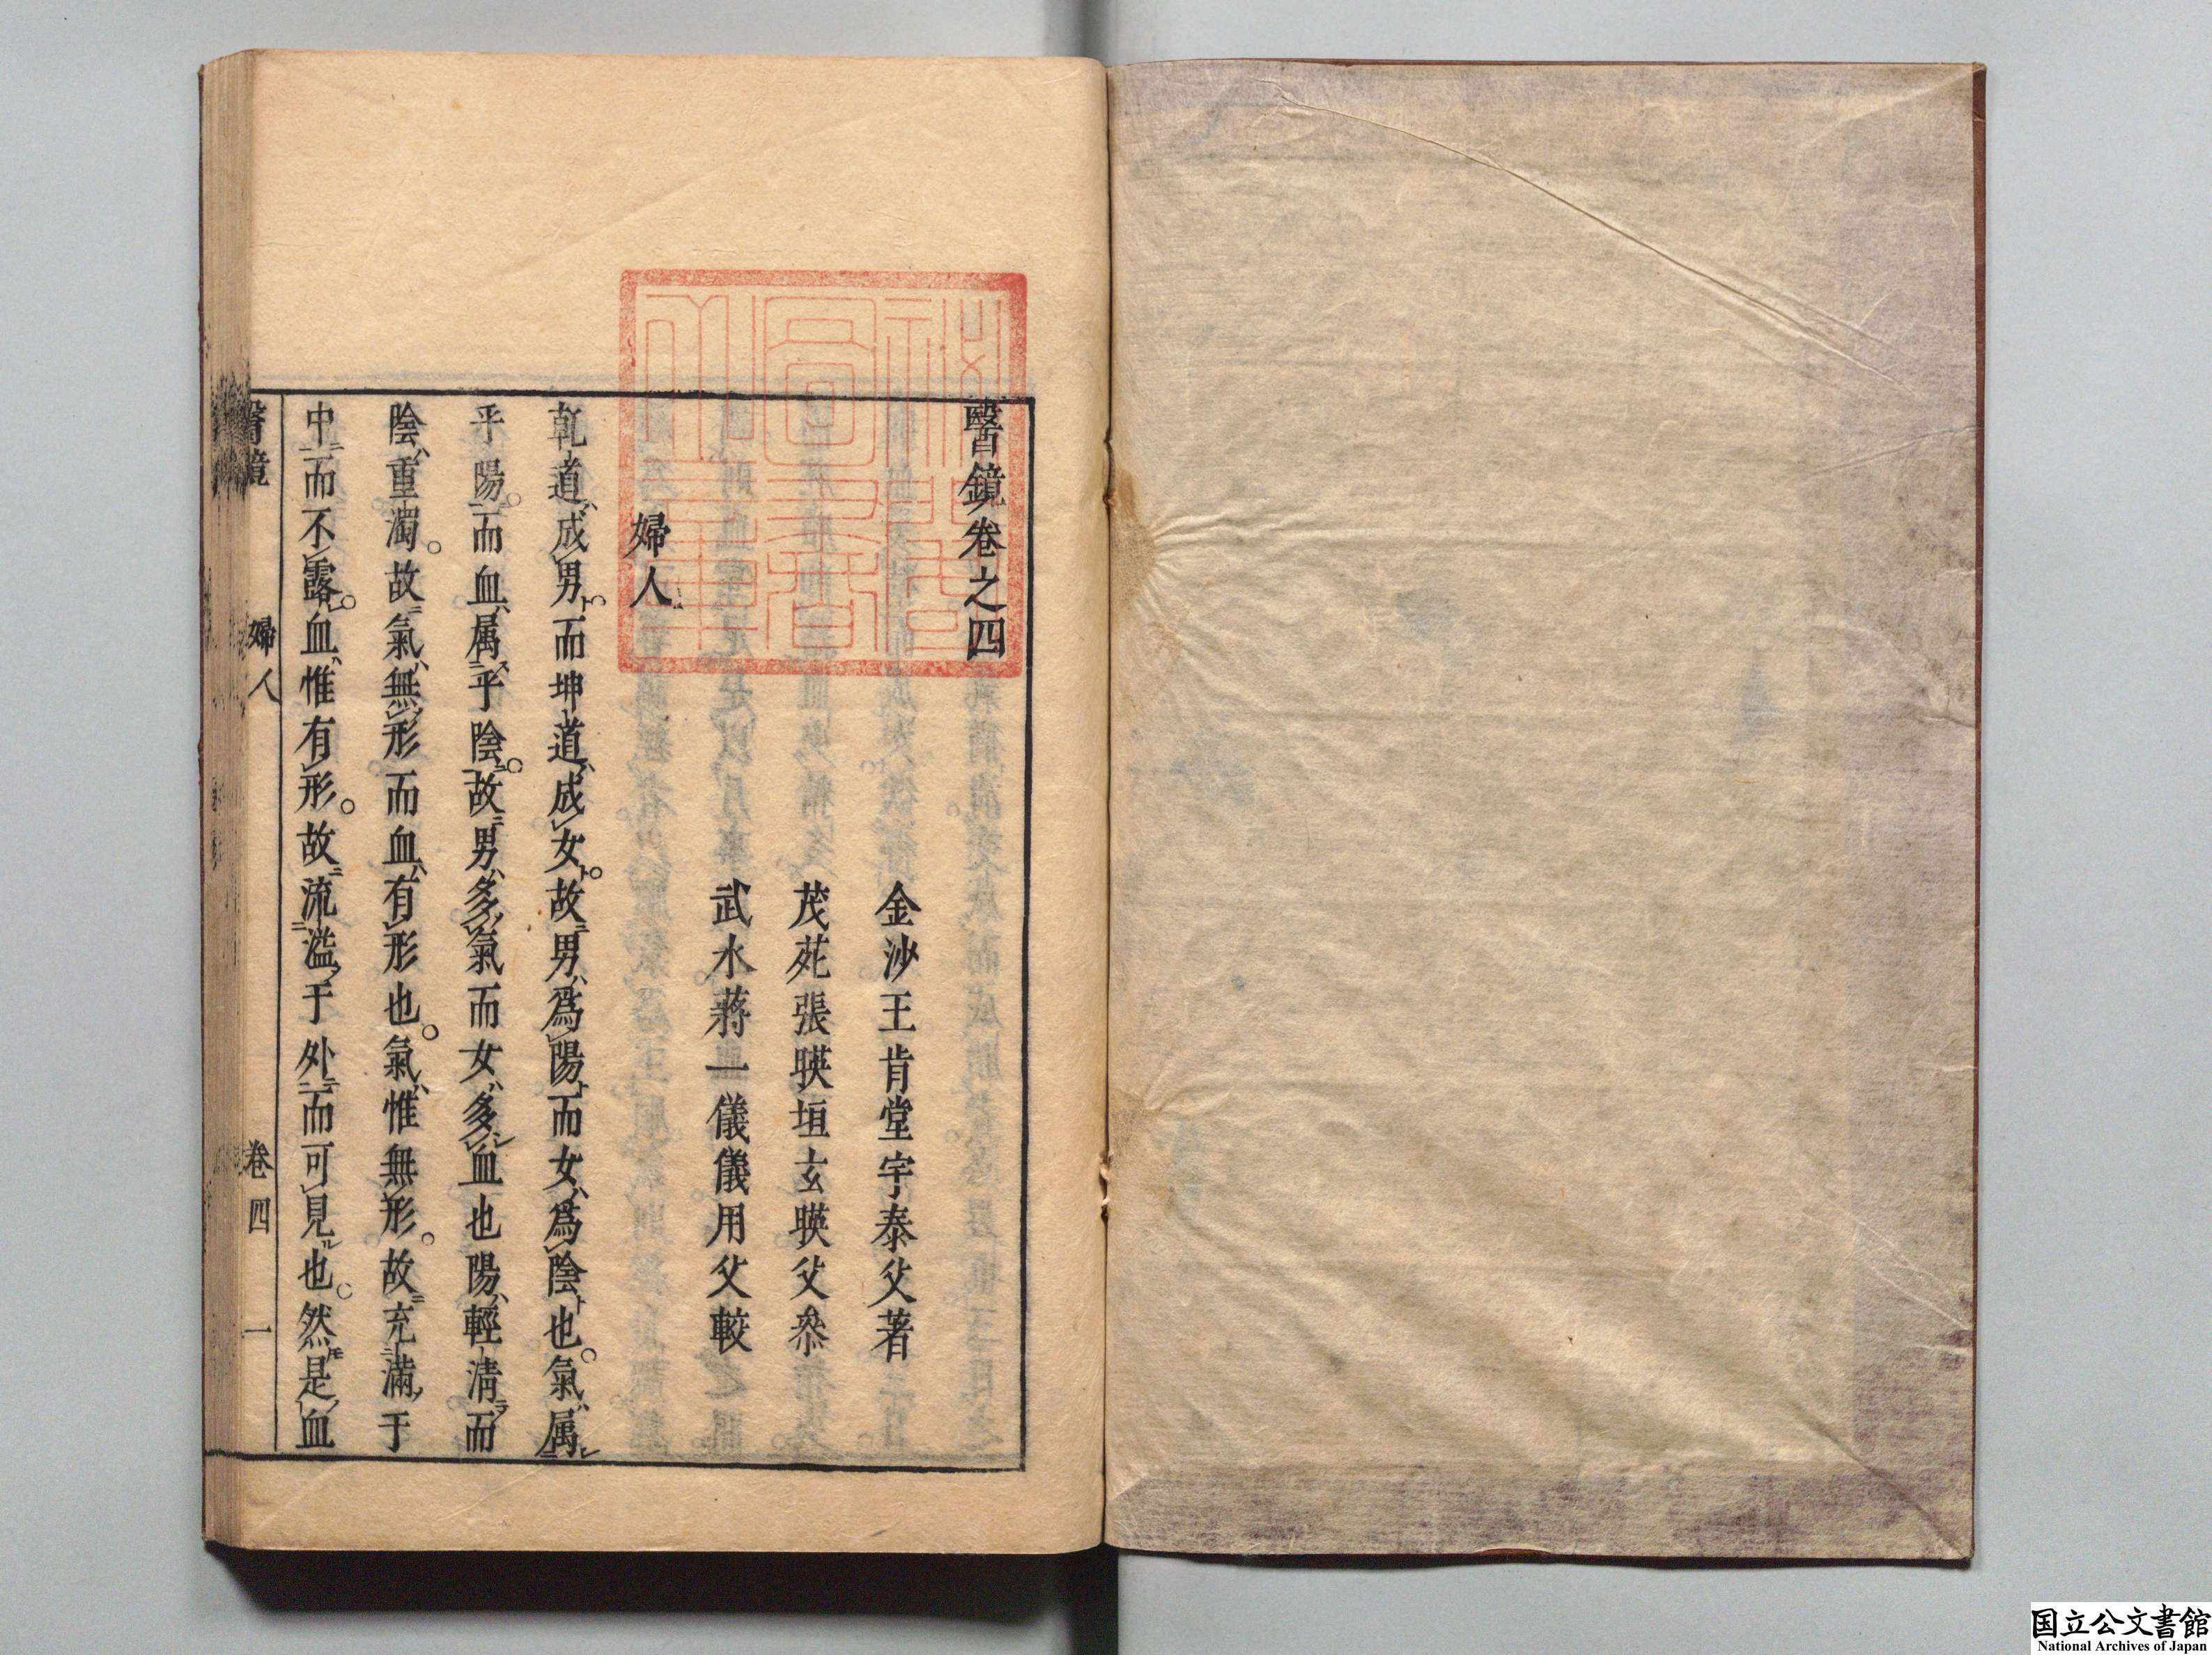 醫鏡卷之四
金沙王肯堂宇泰父著
茂苑張暎垣玄暎父叅
武水蔣一儀儀用父較
婦人
乾道成男。而坤道成女。故男爲陽而女爲陰也。氣属
乎陽。而血属乎陰。故男多氣而女多血也陽輕清而
陰重濁。故氣無形而血有形也。氣惟無形。故充滿于
中而不露。血惟有形。故流溢于外而可見也。然是血
醫鏡 婦人 卷四 一
国立公文書館
National Archives of Japan